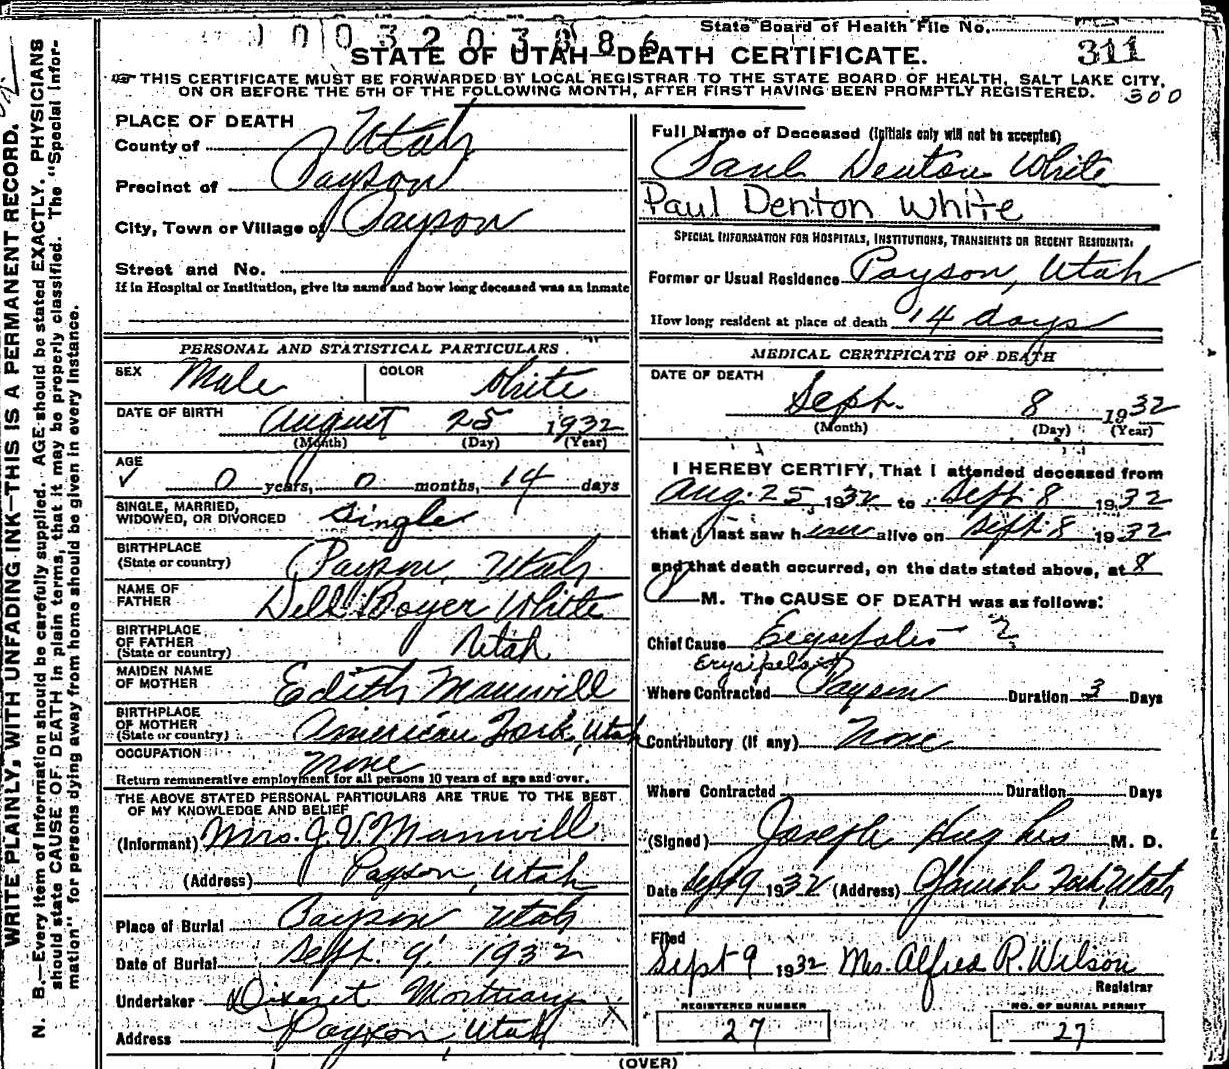 1003203886
State Board of Health File No.
STATE OF UTAH—DEATH CERTIFICATE.
311
THIS CERTIFICATE MUST BE FORWARDED BY LOCAL REGISTRAR TO THE STATE BOARD OF HEALTH, SALT LAKE CITY,
ON OR BEFORE THE 5TH OF THE FOLLOWING MONTH, AFTER FIRST HAVING BEEN PROMPTLY REGISTERED.
300
WRITE PLAINLY, WITH UNFADING INK—THIS IS A PERMANENT RECORD.
N. B.—Every item of information should be carefully supplied. AGE should be stated EXACTLY. PHYSICIANS
should state CAUSE OF DEATH in plain terms, that it may be properly classified. The "Special Infor-
mation" for persons dying away from home should be given in every instance.
PLACE OF DEATH
County of Utah
Precinct of Payson
City, Town or Village of Payson
Street and No.
If in Hospital or Institution, give its name and how long deceased was an inmate
PERSONAL AND STATISTICAL PARTICULARS
SEX Male COLOR White
DATE OF BIRTH August 25 1932
(Month) (Day) (Year)
AGE
✓ 0 years, 0 months, 14 days
SINGLE, MARRIED,
WIDOWED, OR DIVORCED Single
BIRTHPLACE
(State or country) Payson, Utah
NAME OF
FATHER Dell Boyer White
BIRTHPLACE
OF FATHER
(State or country) Utah
MAIDEN NAME
OF MOTHER Edith Manwill
BIRTHPLACE
OF MOTHER
(State or country) American Fork, Utah
OCCUPATION None
Return remunerative employment for all persons 10 years of age and over.
THE ABOVE STATED PERSONAL PARTICULARS ARE TRUE TO THE BEST
OF MY KNOWLEDGE AND BELIEF
(Informant) Mrs. J. V. Manwill
(Address) Payson, Utah
Place of Burial Payson Utah
Date of Burial Sept. 9, 1932
Undertaker Mortuary
Address Payson, Utah
Full Name of Deceased (Initials only will not be accepted)
Paul Denton White
Paul Denton White
SPECIAL INFORMATION FOR HOSPITALS, INSTITUTIONS, TRANSIENTS OR RECENT RESIDENTS:
Former or Usual Residence Payson, Utah
How long resident at place of death 14 days
MEDICAL CERTIFICATE OF DEATH
DATE OF DEATH
Sept. 8 1932
(Month) (Day) (Year)
I HEREBY CERTIFY, That I attended deceased from
Aug. 25, 1932 to Sept. 8 1932
that I last saw him alive on Sept. 8 1932
and that death occurred, on the date stated above, at 8
M. The CAUSE OF DEATH was as follows:
Chief Cause Erysipelas ?
Erysipelas
Where Contracted Payson Duration 3 Days
Contributory (if any) None
Where Contracted Duration Days
(Signed) Joseph Hughes M. D.
Date Sept 9 1932 (Address) Spanish Fork, Utah
Filed
Sept 9 1932 Mrs. Alfred R. Wilson
Registrar
REGISTERED NUMBER NO. OF BURIAL PERMIT
27 27
(OVER)